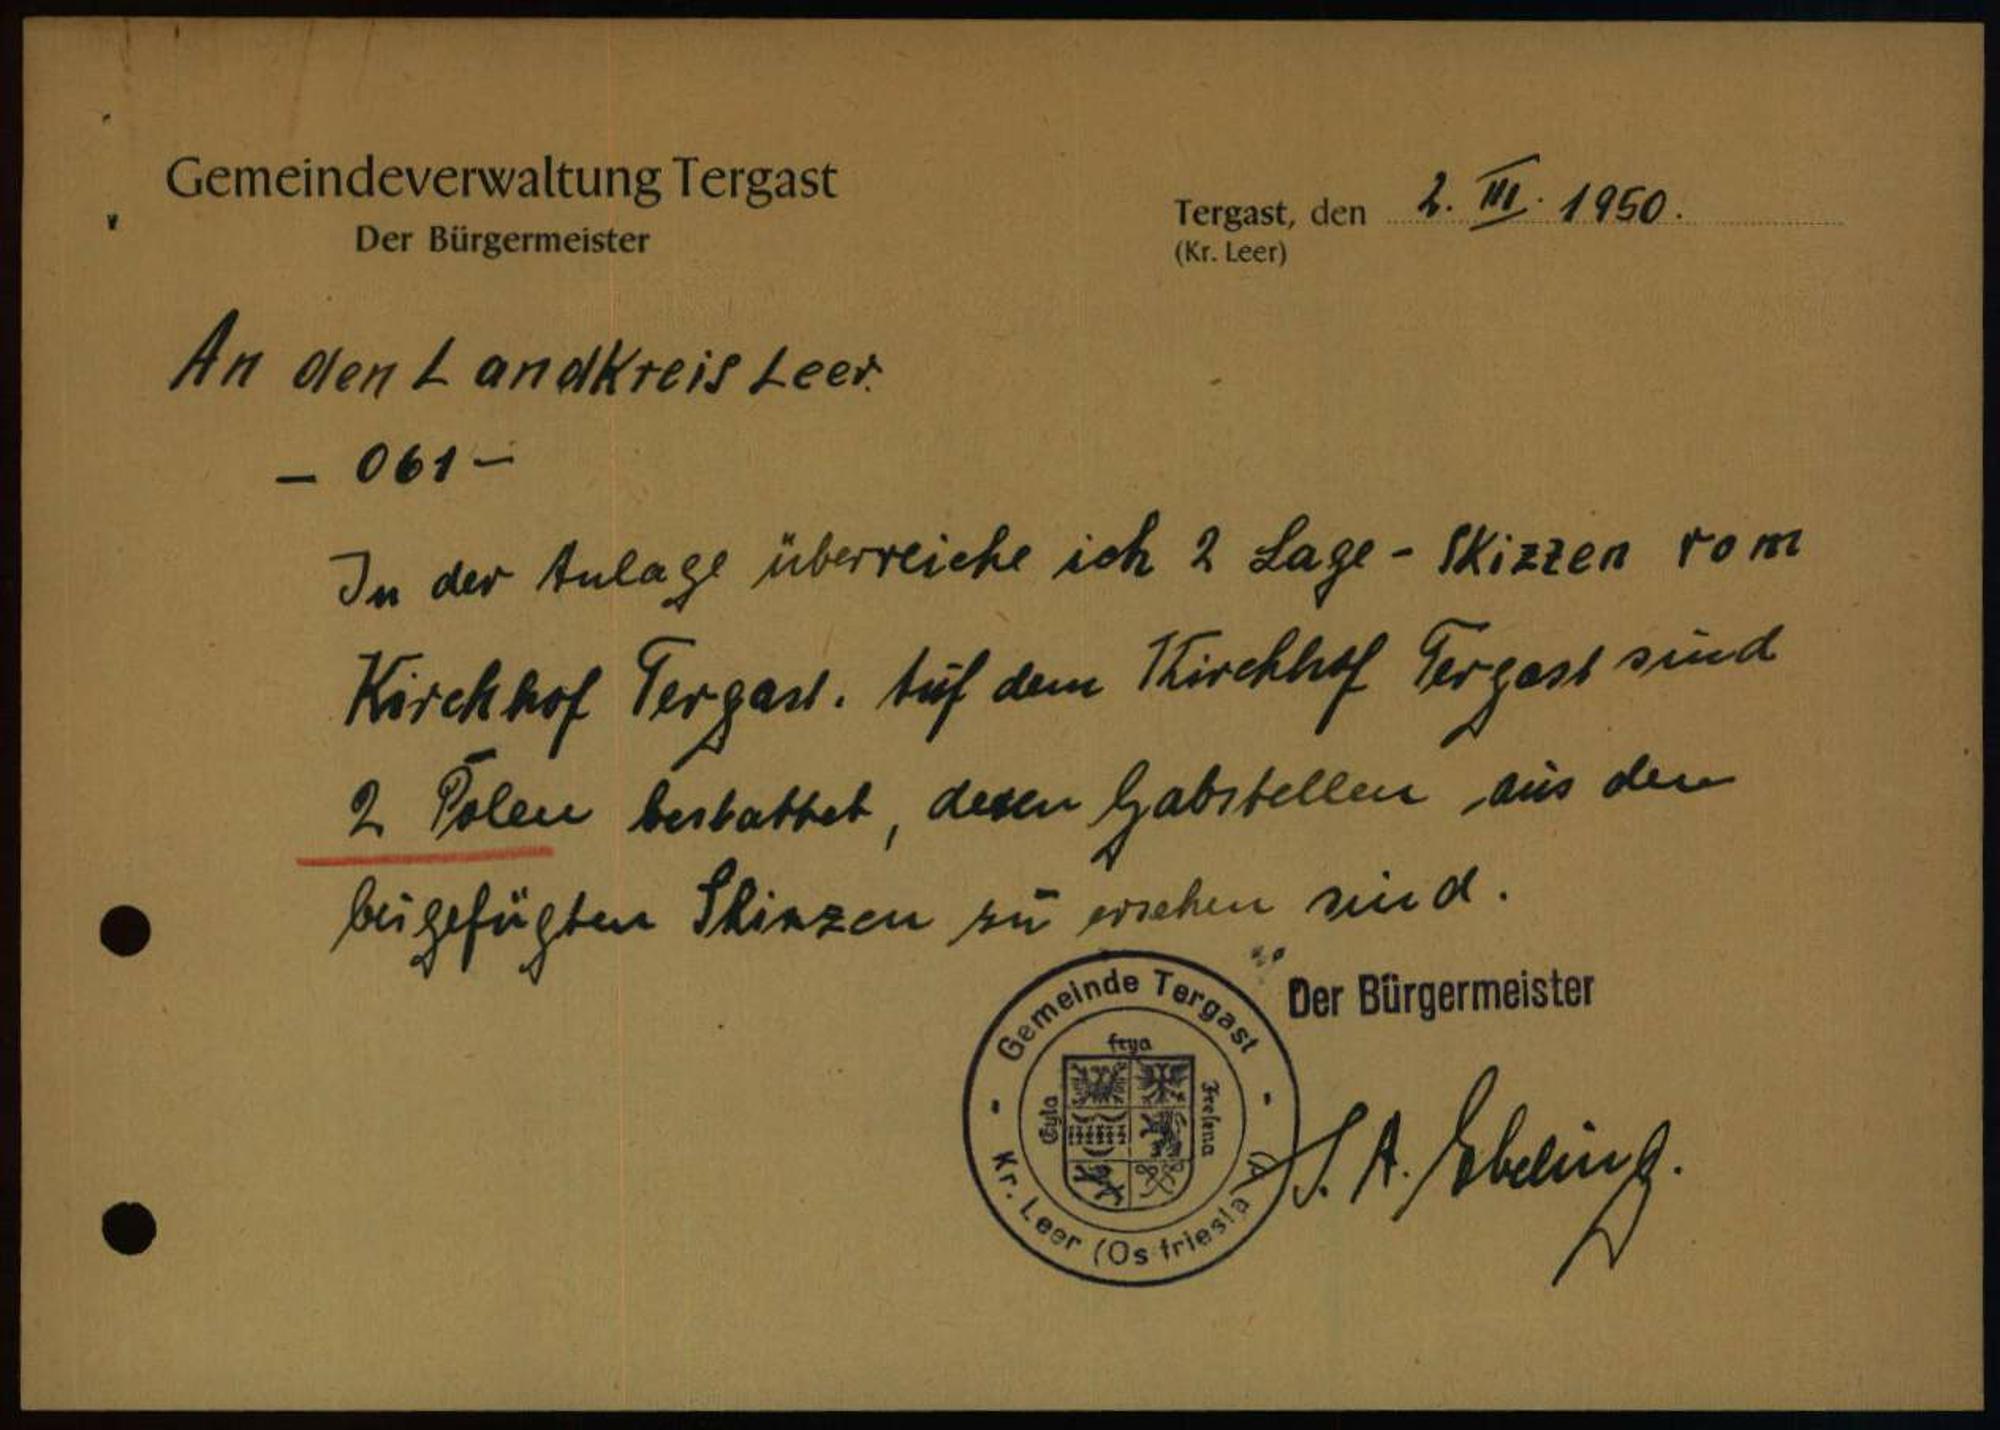 Gemeindeverwaltung Tergast
Der Bürgermeister
Tergast, den 2. III. 1950.
(Kr. Leer)
An den Landkreis Leer.
- 061 -
In der Anlage überreiche ich 2 Lage - Skizzen vom
Kirchhof Tergast. Auf dem Kirchhof Tergast sind
2 Polen bestattet, deren Gabstellen aus den
beigefügten Skizzen zu ersehen sind.
Der Bürgermeister
Gemeinde Tergast
frya
Eyla
Frelena
Kr. Leer (Ostfriesla
J. A. Ebeling.